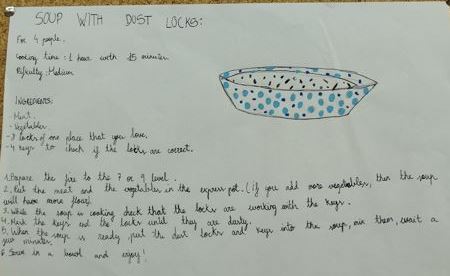 SOUP WITH DUST LOCKS:
For 4 people.
Cooking time: 1 hour with 15 minutes
Dificulty: Medium
INGREDIENTS:
- Meat
- Vegetables
- 3 locks of one place that you love.
- 4 keys to check if the locks are correct.
1. Prepare the fire to the 7 or 9 level.
2. Put the meat and the vegetables in the express pot. (if you add more vegetables, then the soup
will have more flavor)
3. While the soup is cooking check that the locks are working with the keys.
4. the keys and the locks until they are dusty.
5. When the soup is ready, put the dust locks and keys into the soup, mix them, wait a
few minutes.
6. Serve in a bowl and enjoy!